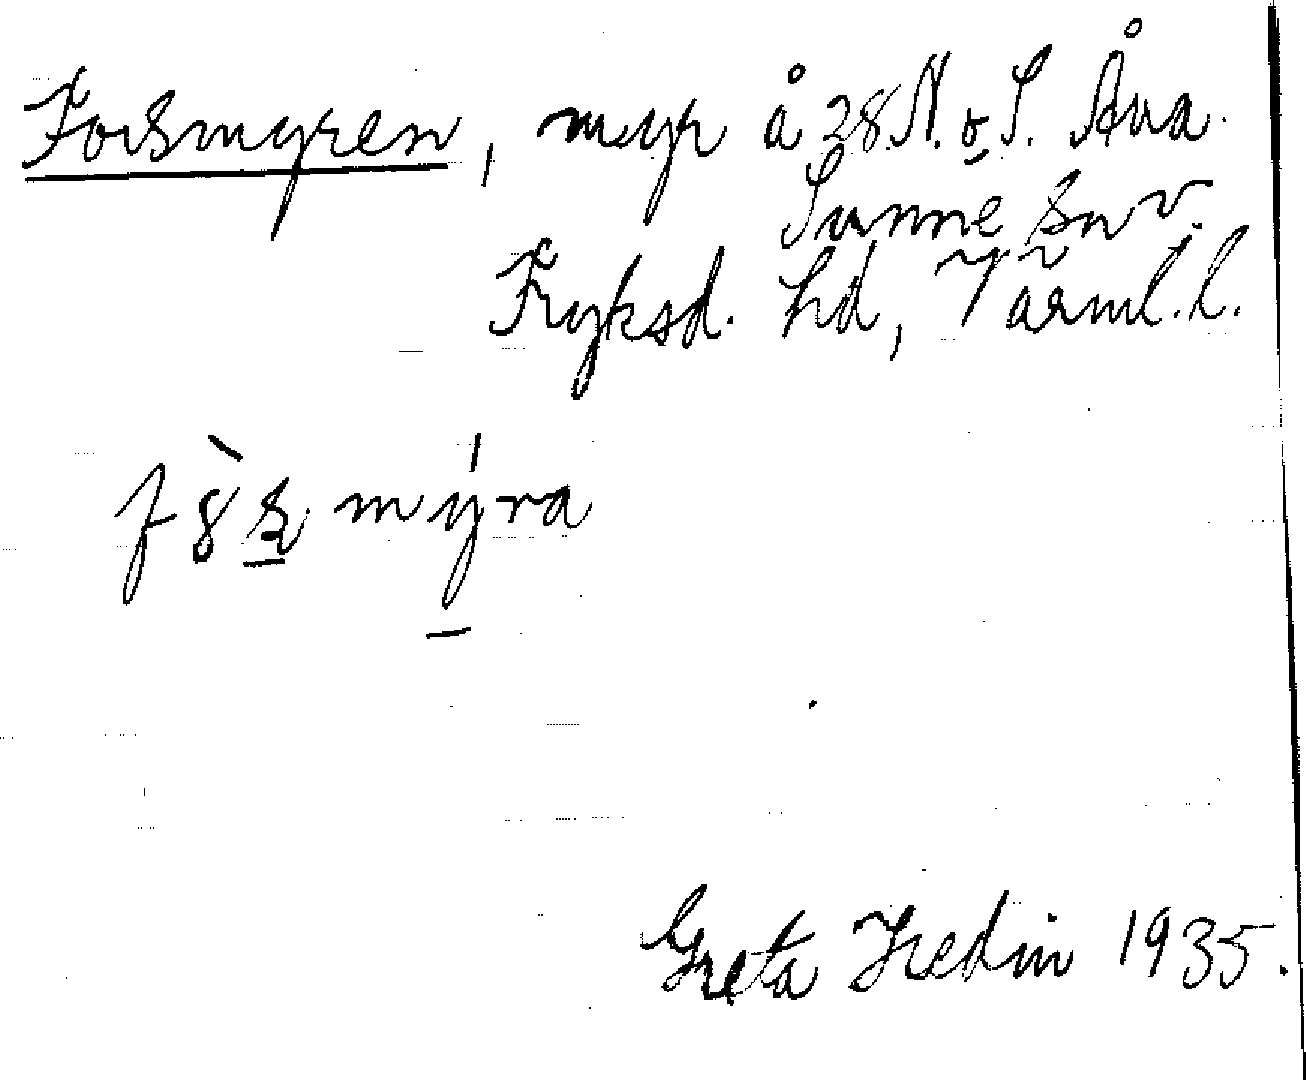 Forsmyren, myr å 28 N. o S. Åva.
Sunne sn v.
Fryksd. hd, Värml. l.
f8s myra
Greta Hedin 1935.